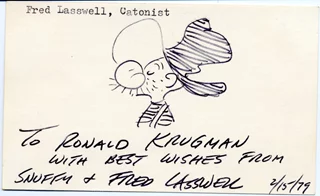 Fred Lasswell, Catonist
To RONALD KRUGMAN
WITH BEST WISHES FROM
SNUFFY & FRED LASSWELL 2/15/79